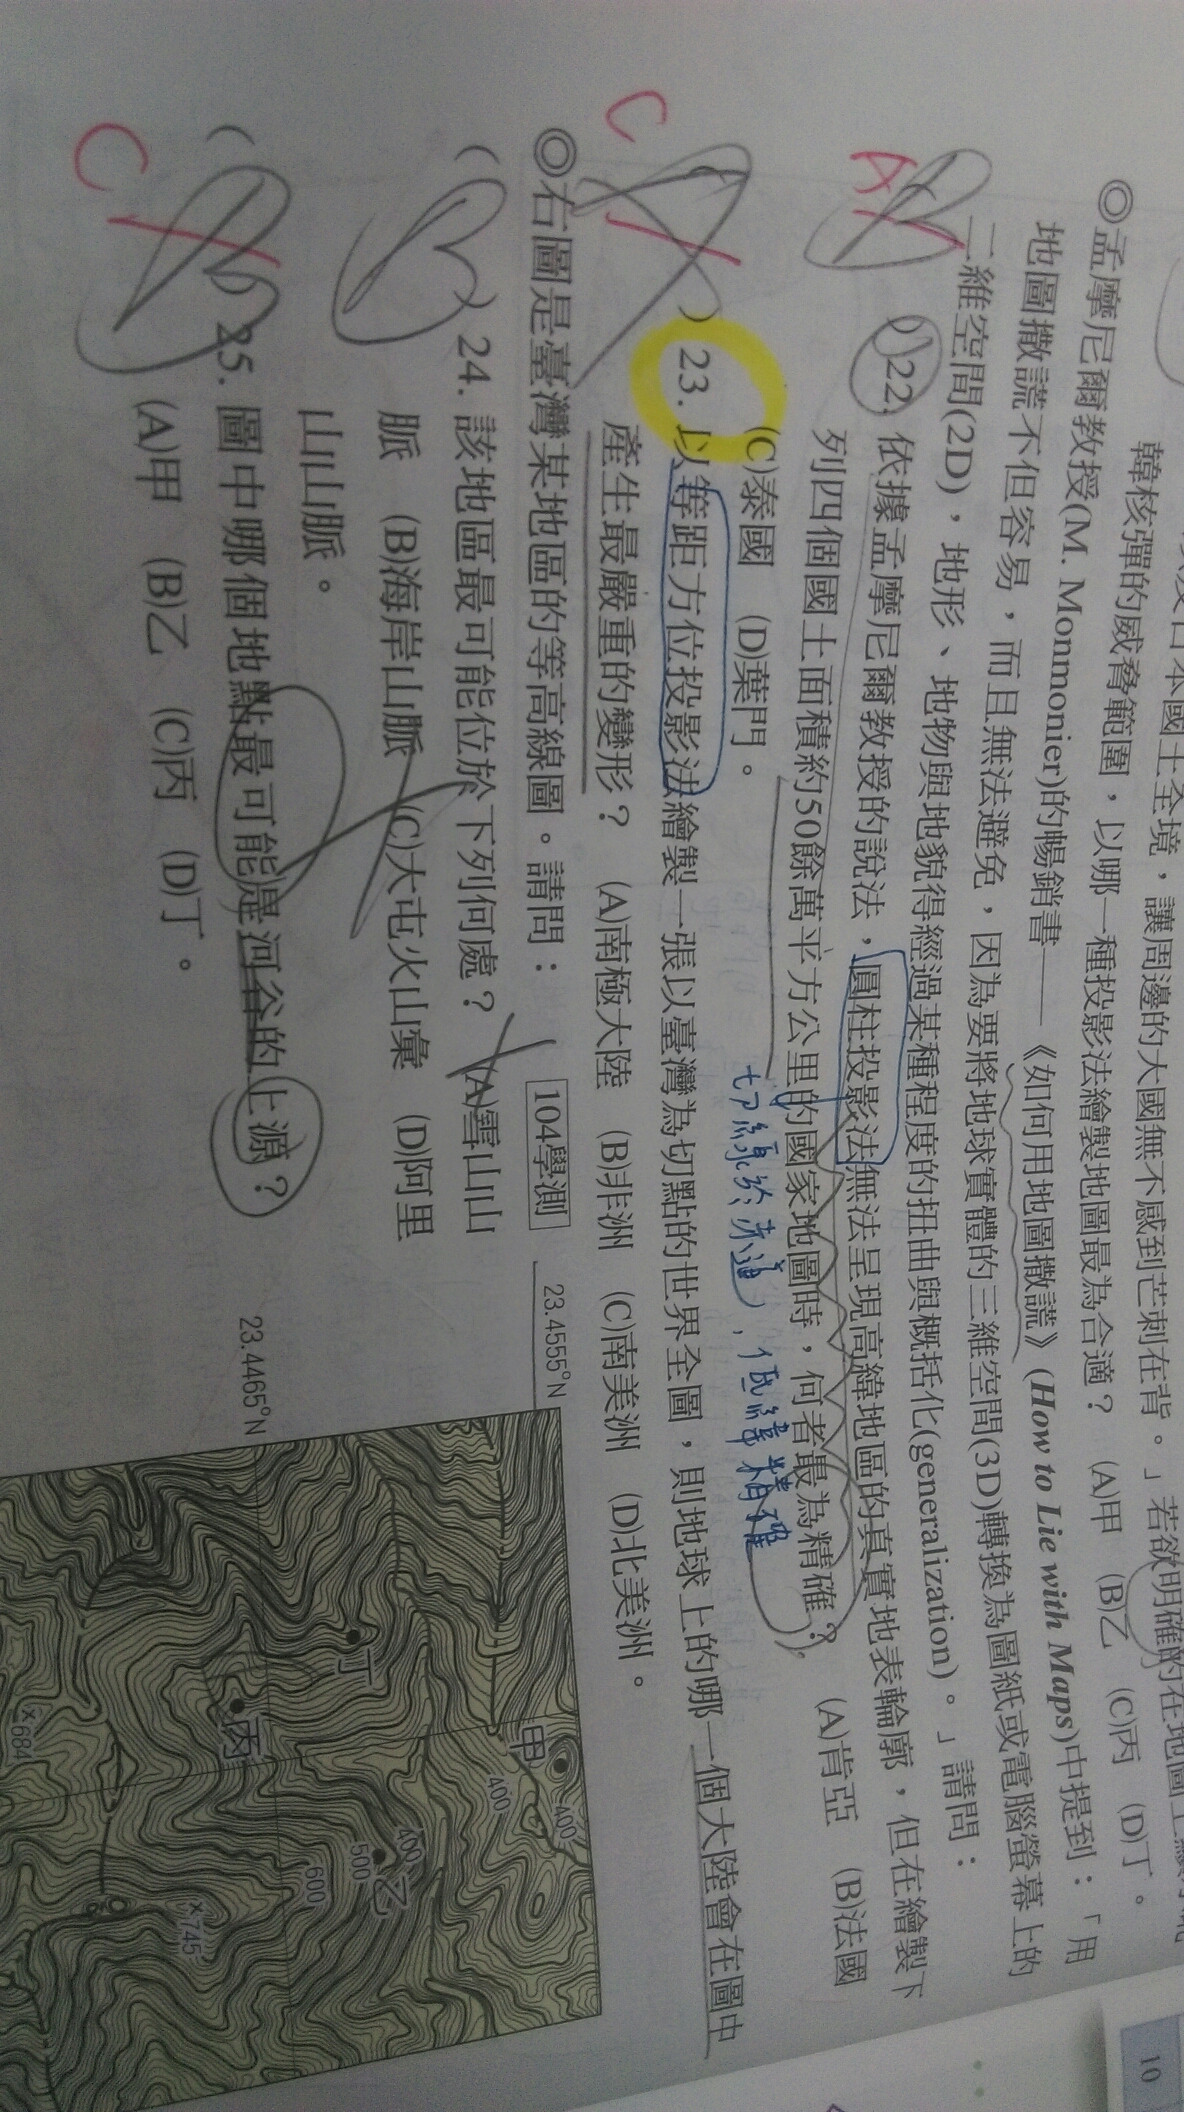 韓核彈的威脅範圍，以哪一種投影法繪製地圖最為合適？ (A)甲 (B)乙 (C)丙 (D)丁。
◎孟摩尼爾教授(M. Monmonier)的暢銷書——《如何用地圖撒謊》(How to Lie with Maps)中提到：「用
地圖撒謊不但容易，而且無法避免，因為要將地球實體的三維空間(3D)轉換為圖紙或電腦螢幕上的
二維空間(2D)，地形、地物與地貌得經過某種程度的扭曲與概括化(generalization)。」請問：
A
( )22. 依據孟摩尼爾教授的說法，圓柱投影法無法呈現高緯地區的真實地表輪廓，但在繪製下
列四個國土面積約50餘萬平方公里的國家地圖時，何者最為精確？ (A)肯亞 (B)法國
(C)泰國 (D)葉門。
切線於赤道，低緯精確
C
) 23. 以等距方位投影法繪製一張以臺灣為切點的世界全圖，則地球上的哪一個大陸會在圖中
產生最嚴重的變形？ (A)南極大陸 (B)非洲 (C)南美洲 (D)北美洲。
◎右圖是臺灣某地區的等高線圖。請問：
104學測
( B ) 24. 該地區最可能位於下列何處？ (A)雪山山
脈 (B)海岸山脈 (C)大屯火山彙 (D)阿里
山山脈。
C
( 25. 圖中哪個地點最可能是河谷的上源？
(A)甲 (B)乙 (C)丙 (D)丁。
23.4555°N
23.4465°N
甲
400
400
丁
丙
400
乙
500
600
×684
×745
10